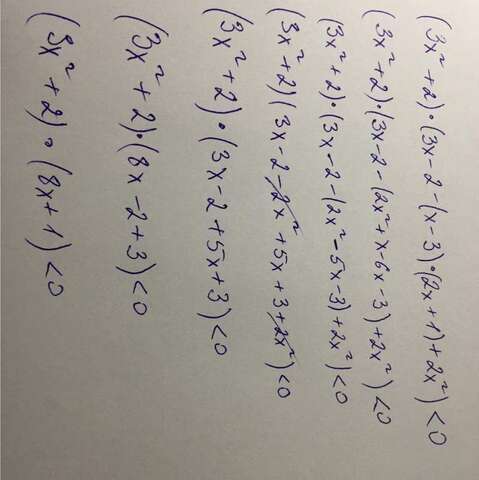 (3x²+2)·(3x-2-(x-3)·(2x+1)+2x²)<0
(3x²+2)·(3x-2-(2x²+x-6x-3)+2x²)<0
(3x²+2)·(3x-2-(2x²-5x-3)+2x²)<0
(3x²+2)(3x-2-2x²+5x+3+2x²)<0
(3x²+2)·(3x-2+5x+3)<0
(3x²+2)·(8x-2+3)<0
(3x²+2)·(8x+1)<0